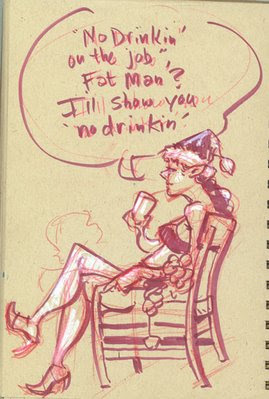 "No Drinkin'
on the job,"
Fat Man"?
I'll show you
"no drinkin'."